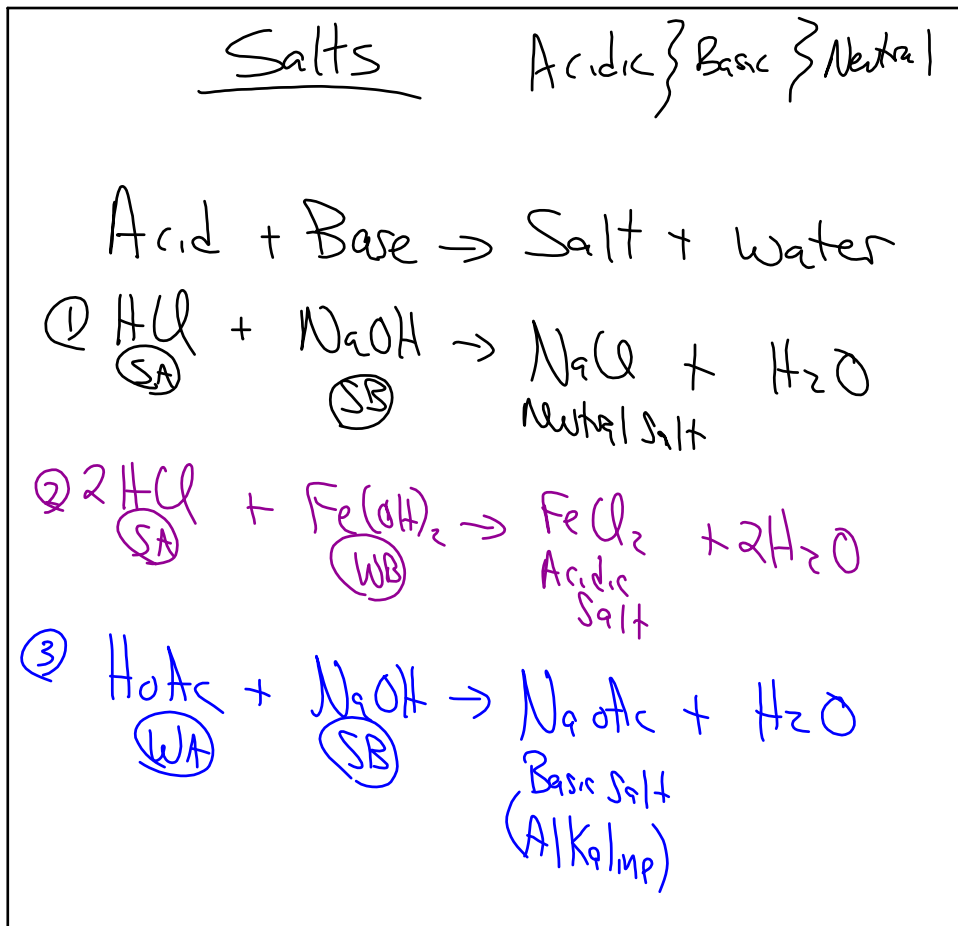 Salts Acidic } Basic } Neutral
Acid + Base → Salt + Water
① HCl + NaOH → NaCl + H₂O
SA SB Neutral Salt
② 2HCl + Fe(OH)₂ → FeCl₂ + 2H₂O
SA WB Acidic
Salt
③ HOAc + NaOH → NaOAc + H₂O
WA SB Basic Salt
(Alkaline)